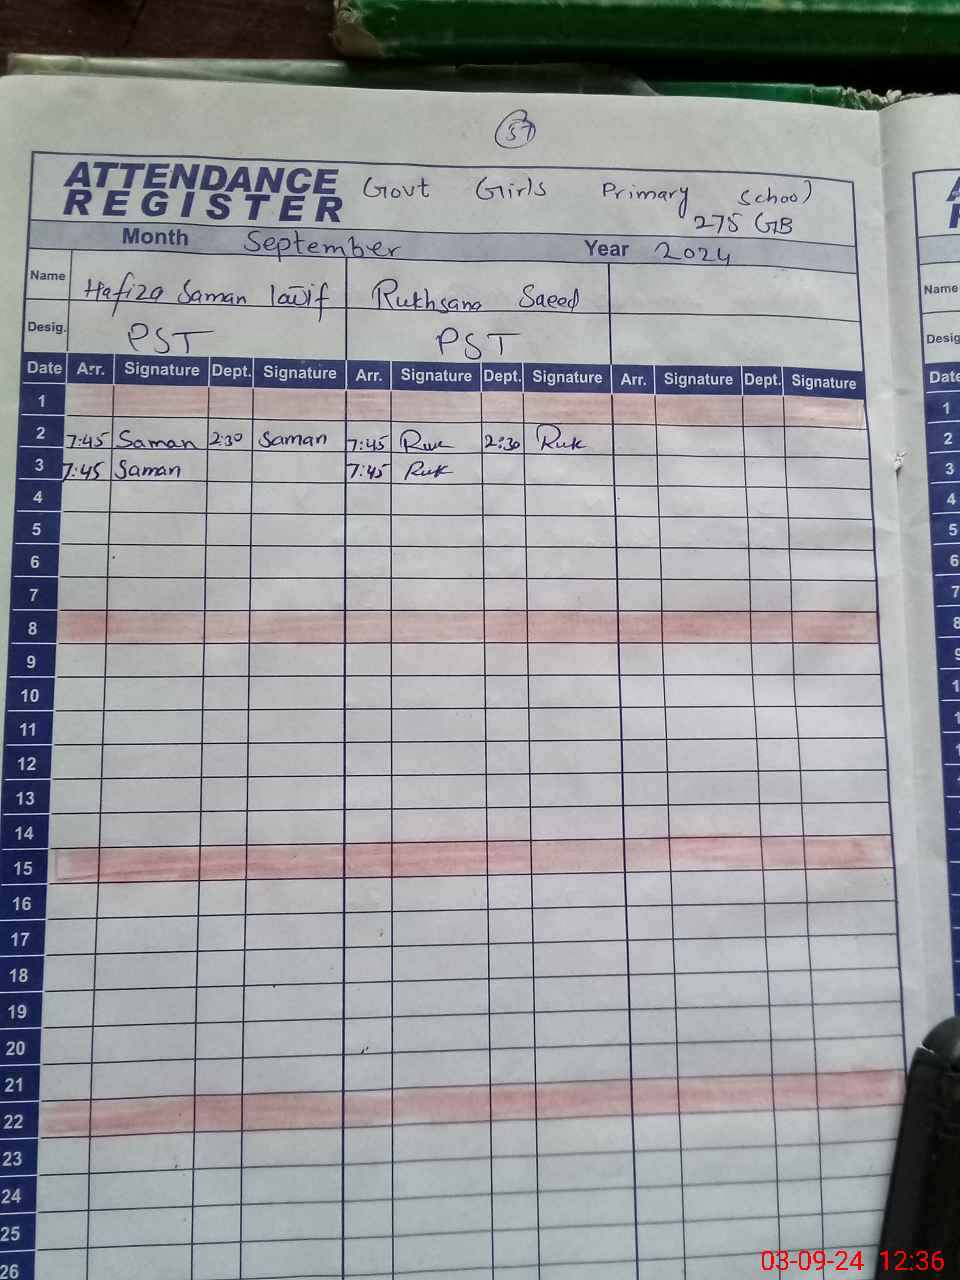 57
ATTENDANCE REGISTER Govt Girls Primary School
275 GB
Month September Year 2024
Name Hafiza Saman Rukhsana Saeed
Desig. PST PST
Date Arr. Signature Dept. Signature Arr. Signature Dept. Signature Arr. Signature Dept. Signature
1
2 7:45 Saman 2:30 Saman 7:45 Ruk 2:30 Ruk
3 7:45 Saman 7:45 Ruk
4
5
6
7
8
9
10
11
12
13
14
15
16
17
18
19
20
21
22
23
24
25
26
Name
Desig
Date
1
2
3
4
5
6
7
8
03-09-24 12:36